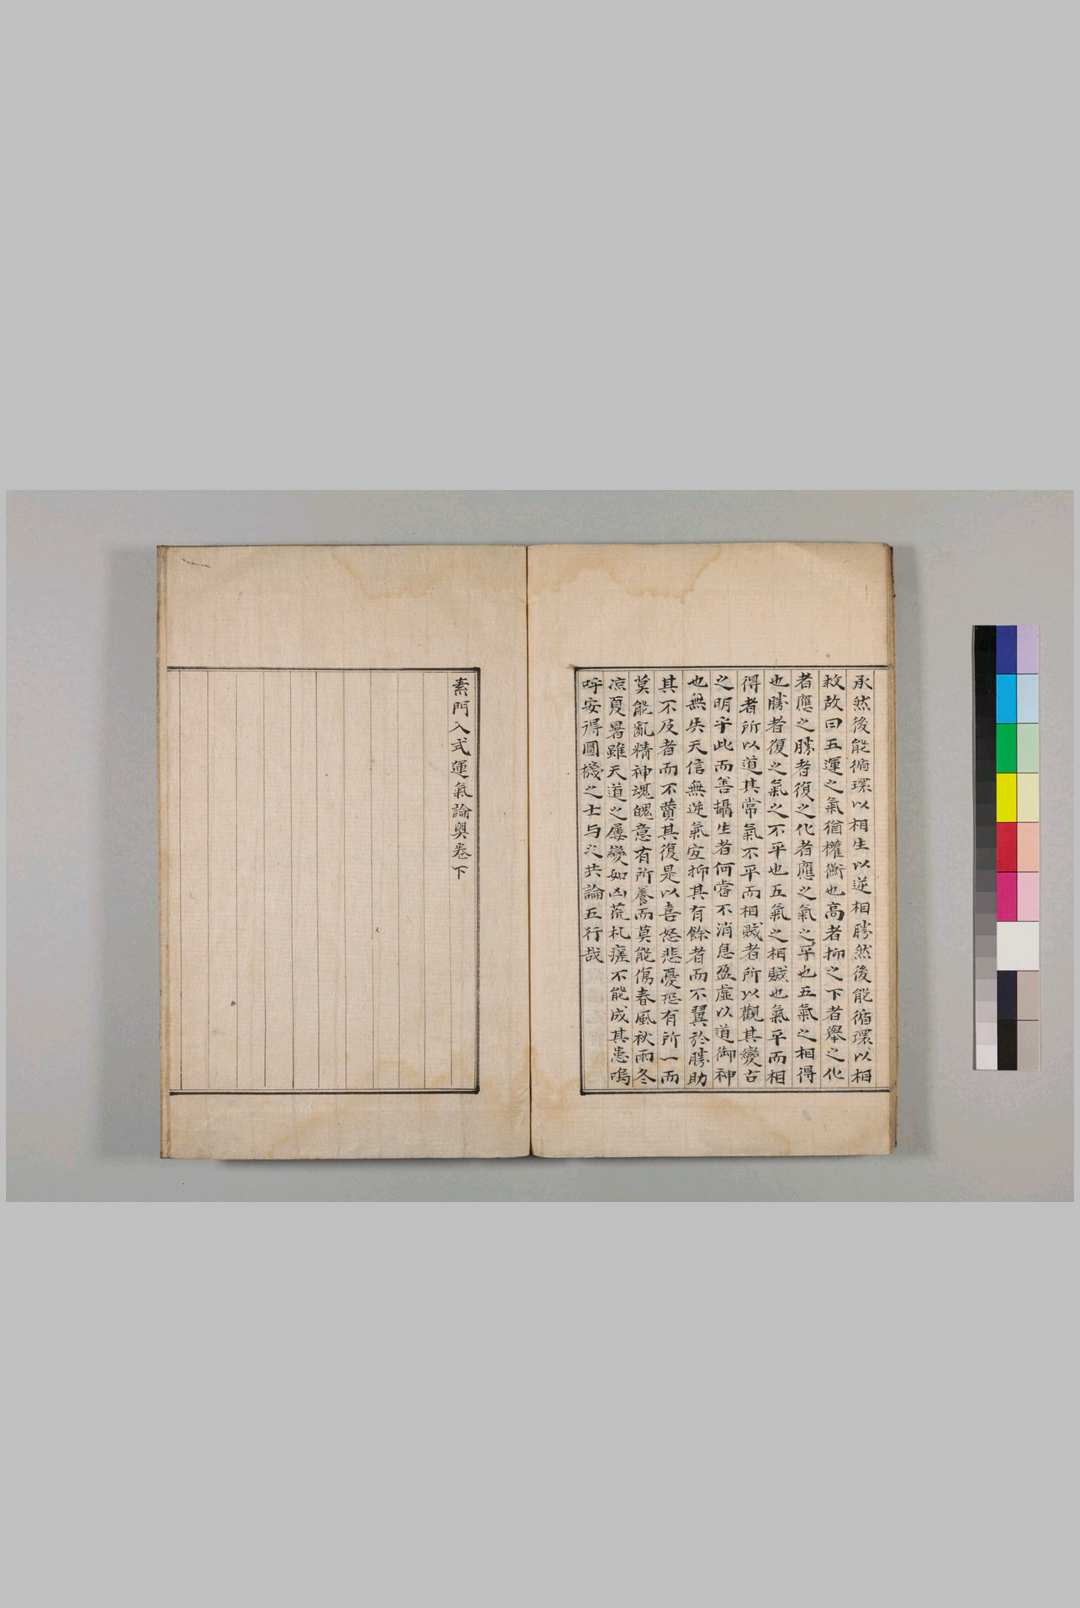 承然後能循環以相生以逆相勝然後能循環以相
救故曰五運之氣猶權衡也高者抑之下者舉之化
者應之勝者復之化者應之氣之平也五氣之相得
也勝者復之氣之不平也五氣之相賊也氣平而相
得者所以道其常氣不平而相賊者所以觀其變古
之明乎此而善攝生者何嘗不消息盈虛以道御神
也無失天信無逆氣宜抑其有餘者而不翼於勝助
其不及者而不贊其復是以喜怒悲憂恐有所一而
莫能亂精神魂魄意有所養而莫能傷春風秋雨冬
凉夏暑雖天道之屢變如凶荒札瘥不能成其患嗚
呼安得圓機之士与之共論五行哉
素門入式運氣論奧卷下